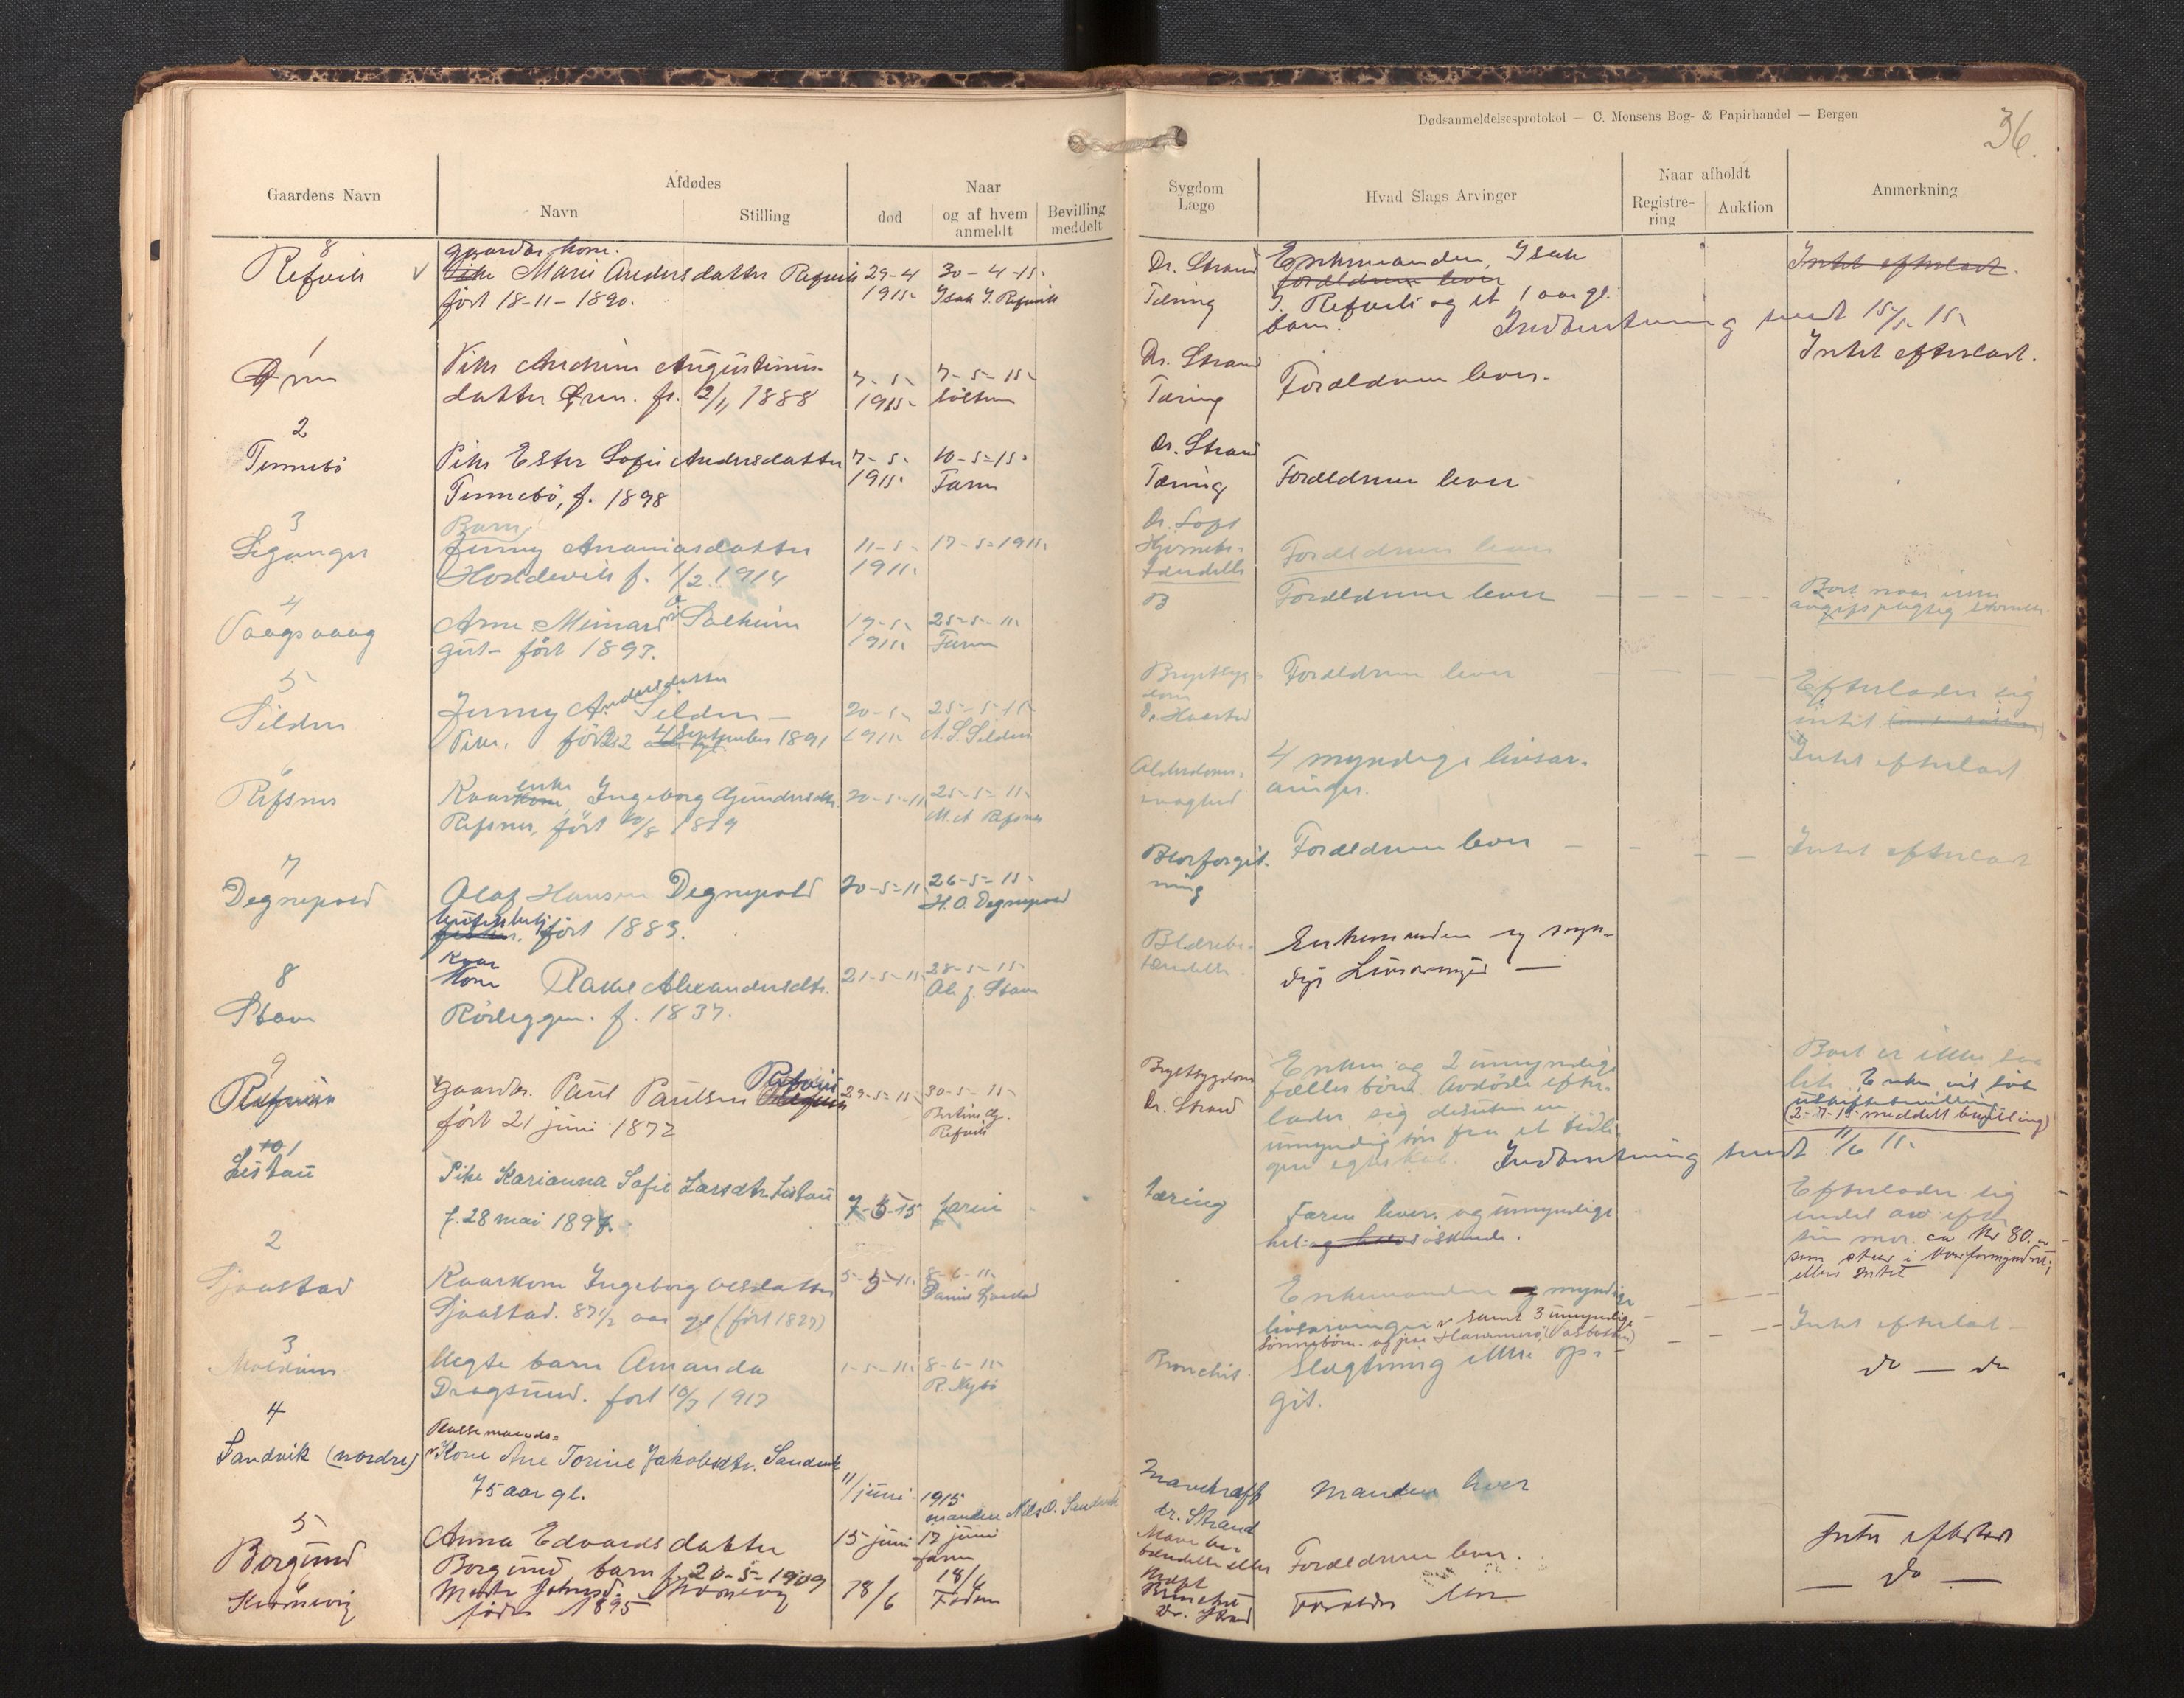 Dødsanmeldelsesprotokol — C. Monsens Bog- & Papirhandel — Bergen
36.
Gaardens Navn
Afdødes
Navn
Stilling
død
Naar
og af hvem
anmeldt
Bevilling
meddelt
Sygdom
Læge
Hvad Slags Arvinger
Naar afholdt
Registre-
ring
Auktion
Anmerkning
8
Refvik
gaardbr. kone.
Pike Marie Andersdatter Refvik
født 18-11-1890.
29-4
1915
30-4-15
Isak J. Refvik
Dr. Strand
Tæring
Enkemanden, Isak
forældrene lever
J. Refvik og et 1 aar gl.
barn.
Indberetning sendt 15/5 15
Intet efterladt.
1
Pike Andrine Augustinus-
datter
2/11 1888
7-5-
1915
7-5-15
Dr. Strand
Tæring
Forældrene lever.
Intet efterladt.
2
Tennebö
Pike Ester Sofie Andersdatter
Tennebö, f. 1898
7-5-
1915
10-5-15
Faren
Dr. Strand
Tæring
Forældrene lever
3
Barn
Jenny Ananiasdatter
Hoddevik f. 1/2 1914
11-5-
1915
17-5-1915
Hjernebe-
tændelse
Forældrene lever
4
Vaagsvaag
Arne Meinard Salheim
gut- født 1893.
19-5-
1915
25-5-15
Faren
Forældrene lever
Bort naar
avgiftspligtig
5
Silden
Jenny Andersdatter Silden
Pike, født 22 September 1891
20-5-
1915
25-5-15
A. S. Silden
Brystsyg-
dom
Forældrene lever
Efterlader sig
intet.
6
Refsnes
Kaarenke Ingeborg Gundersdtr.
Refsnes, født /8 1819
20-5-15
25-5-15
M. A. Refsnes
Alderdoms-
svaghed
4 myndige livsar-
vinger.
Intet efterladt
7
Degnepold
Olaf Hansen Degnepold
født 1883.
20-5-15
26-5-15
H. O. Degnepold
Blodforgift-
ning
Forældrene lever
Intet efterladt
8
Stave
Kaar
kone Rakel Alexandersdtr.
Rörleggen. f. 1837.
21-5-15
28-5-15
Blærebe-
tændelse.
Enkemanden og myn-
dige Livsarvinger
9
Refvik
Gaardbr. Paul Paulsen Refvik
født 21 juni 1872
29-5-15
30-5-15
Refvik
Brystsygdom
Dr. Strand
Enken og 2 umyndige
fælles börn. Avdöde efter-
lader sig desuten en
umyndig sön fra et tidli-
gere egteskab.
Indberetning sendt 11/6 15
Boet er ikke saa
lite. Enken vil
(2-7-15 meddelt bevilling)
10 1
Listau
Pike Karianna Sofie Larsdtr. Listau
f. 28 mai 1897.
7-6-15
faren
tæring
Faren lever. og umyndige
hel- og halvsöskende.
Efterlader sig
endel arv efter
sin mor. ca Kr 80.
som staar i Overformynderiet;
ellers intet
2
Kaarkone Ingeborg Olesdatter
87 1/2 aar gl (født 1827)
8-6-15
Enkemanden og myndige
livsarvinger samt 3 umyndige
Intet efterladt
3
Moldöen
Uegte barn Amanda
Dragsund. født 10/7 1913
1-5-15
8-6-15
R. Nybö
Bronchit
Slegtning ikke op-
git.
do — do
4
Sandvik (nordre)
Kone Ane Torine Jakobsdtr. Sandvik
75 aar gl.
11/juni 1915
manden Nils O. Sandvik
Mavekræft
dr. Strand
Manden lever
5
Borgund
Anna Edvardsdatter
Borgund barn f. 20-5-1909
15 juni
17 juni
faren
Forældrene lever.
Intet efterladt
født 1895
18/6
18/6
Bronchit
Dr. Strand
Forældre lever
do